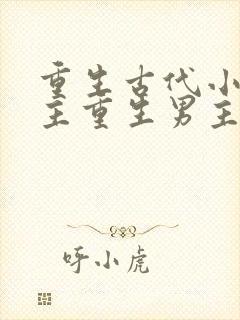 重生古代小
主重生男主
呼小虎